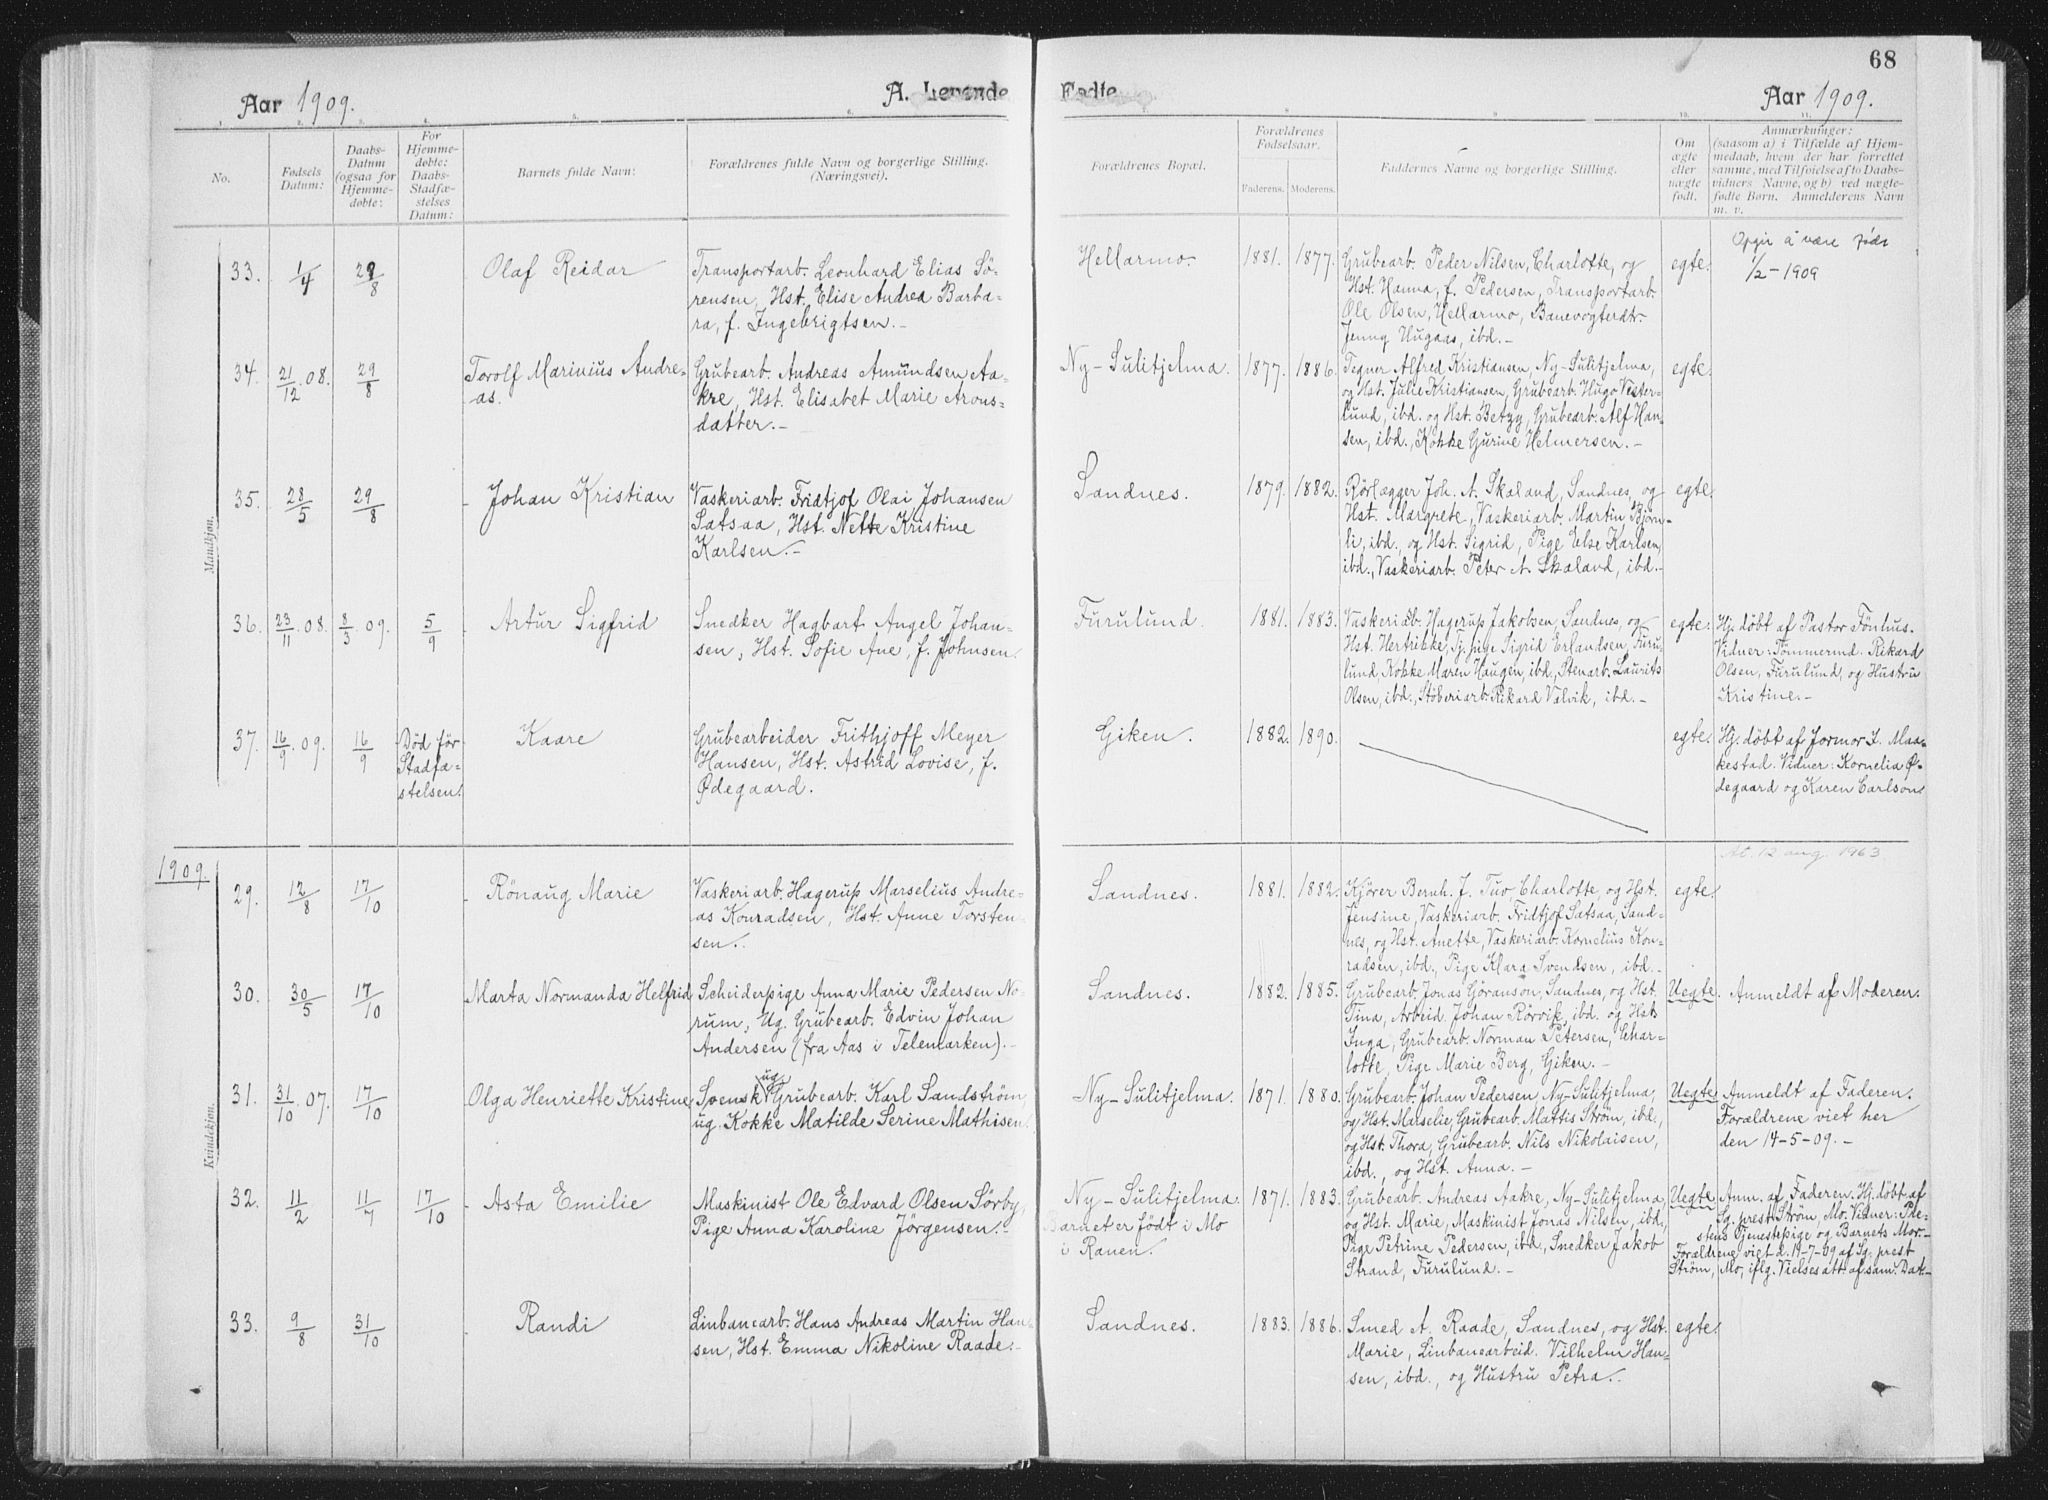 68
Aar 1909.
A. Levende
Fødte.
Aar 1909.
1.
2.
3.
4.
5.
6.
8.
9
10.
11.
No.
Fødsels
Datum:
Daabs-
Datum
(ogsaa for
Hjemme-
døbte:
For
Hjemme-
døbte:
Daabs-
Stadfæ-
stelses
Datum:
Barnets fulde Navn:
Forældrenes fulde Navn og borgerlige Stilling.
(Næringsvei).
Forældrenes Bopæl.
Forældrenes
Fødselsaar.
Faderens.
Moderens.
Faddernes Navne og borgerlige Stilling.
Om
ægte
eller
uægte
født.
Anmærkninger:
(saasom a) i Tilfælde af Hjem-
medaab, hvem der har forrettet
samme, med Tilføielse af to Daabs-
vidners Navne, og b) ved uægte-
fødte Børn. Anmelderens Navn
m. v.
Mandkjøn.
33.
1/4
29/8
Olaf Reidar
Transportarb. Leonhard Elias Sö-
rensen, Hst. Elise Andrea Barba-
ra, f. Ingebrigtsen.-
Hellarmo.
1881.
1877.
Grubearb. Peder Nilsen, Charlotte, og
Hst. Hanna, f. Pedersen, Transportarb.
Ole Olsen, Hellarmo, Banevogterdtr.
Jenny Hugaas, ibd.-
egte.
Opgir å være født
1/2-1909
34.
21/12 08.
29/8
Torolf Marinius Andre-
as.
Grubearb. Andreas Amundsen Aa-
kre, Hst. Elisabet Marie Arons-
datter.-
Ny-Sulitjelma.
1877.
1886.
Tegner Alfred Kristiansen, Ny-Sulitjelma,
og Hst. Julie Kristiansen, Grubearb. Hugo Vester-
lund, ibd. og Hst. Betzy, Grubearb. Alf Han-
sen, ibd., Kokke Gurine Helmersen.-
egte.
35.
28/5
29/8
Johan Kristian
Vaskeriarb. Fridtjof Olai Johansen
Satsaa, Hst. Nette Kristine
Karlsen.-
Sandnes.
1879.
1882.
Rörlægger Joh. A. Skaland, Sandnes, og
Hst. Margrete, Vaskeriarb. Martin Björn-
li, ibd., og Hst. Sigrid, Pige Else Karlsen,
ibd., Vaskeriarb. Peter A. Skaland, ibd.-
egte.
36.
23/11 08.
8/3 09.
5/9
Artur Sigfrid
Snedker Hagbart Angel Johan-
sen, Hst. Sofie Ane, f. Johnsen.
Furulund.
1881.
1883.
Vaskeriab. Hagerup Jakobsen, Sandnes, og
Hst. Hertrikke, Tj. pige Sigrid Erlandsen, Furu-
lund, Kokke Maren Haugen, ibd., Stenarb. Laurits
Olsen, ibd., Stöberiarb. Rikard Valvik, ibd.-
egte.
Hj. döbt af Pastor Fönhus.
Vidner: Tömmermd. Rikard
Olsen, Furulund, og Hustru
Kristine.-
37.
16/9 09.
16/9
Död för
Stadfæ-
stelsen.
Kaare
Grubearbeider Frithjoff Meyer
Hansen, Hst. Astrid Lovise, f.
Ødegaard.
Giken.
1882.
1890.
egte.
Hj. döbt af Jormor I. Maa-
kestad. Vidner: Kornelia Ø-
degaard og Karen Carlson.
1909.
Kvindekjøn.
29.
12/8
17/10
Rönaug Marie
Vaskeriarb. Hagerup Marselius Andre-
as Konradsen, Hst. Anne Torsten-
sen.
Sandnes.
1881.
1882.
Kjörer Bernh. J. Tuv, Charlotte, og Hst.
Jensine, Vaskeriarb. Fridtjof Satsaa, Sand-
nes, og Hst. Anette, Vaskeriarb. Kornelius Kon-
radsen, ibd., Pige Klara Svendsen, ibd.-
egte.
At. 12 aug. 1963
30.
30/5
17/10
Marta Normanda Helfrid
Scheiderpige Anna Marie Pedersen No-
rum, Ug. Grubearb. Edvin Johan
Andersen (fra Aas i Telemarken).-
Sandnes.
1882.
1885.
Grubearb. Jonas Göranson, Sandnes, og Hst.
Tina, Arbeid. Johan Rörvik, ibd. og Hst.
Inga, Grubearb. Norman Petersen, Char-
lotte, Pige Marie Berg, Giken.-
Uegte.
Anmeldt af Moderen.
31.
31/10 07.
17/10
Olga Henriette Kristine
Svensk ug Grubearb. Karl Sandström,
ug. Kokke Matilde Serine Mathisen.
Ny-Sulitjelma.
1871.
1880.
Grubearb. Johan Pedersen, Ny-Sulitjelma,
og Hst. Marselie, Grubearb. Mattis Strøm, ibd.,
og Hst. Thora, Grubearb. Nils Nikolaisen,
ibd., og Hst. Anna.-
Uegte
Anmeldt af Faderen.
Forældrene viet her
den 14-5-09.-
32.
11/2
11/7
17/10
Asta Emilie
Maskinist Ole Edvard Olsen Sörby,
Pige Anna Karoline Jörgensen.-
Ny-Sulitjelma.
Barnet er födt i Mo
i Ranen.
1871.
1883.
Grubearb. Andreas Aakre, Ny-Sulitjelma,
og Hst. Marie, Maskinist Jonas Nilsen, ibd.,
Pige Petrine Pedersen, ibd., Snedker Jakob
Strand, Furulund.-
Uegte
Anm. af Faderen. Hj. döbt af
Sg. prest Ström, Mo. Vidner: Pre-
stens Tjenestepige og Barnets Mor.-
Forældrene viet d. 19-7-09 af Sg. prest
Ström, Mo, iflg. Vielsesatt. af sam. Dat-
33.
9/8
31/10
Randi
Linbanearb. Hans Andreas Martin Han-
sen, Hst. Emma Nikoline Raade.-
Sandnes.
1883.
1886.
Smed A. Raade, Sandnes, og Hst.
Marie, Linbanearbeid. Vilhelm Han-
sen, ibd., og Hustru Petra.
egte.